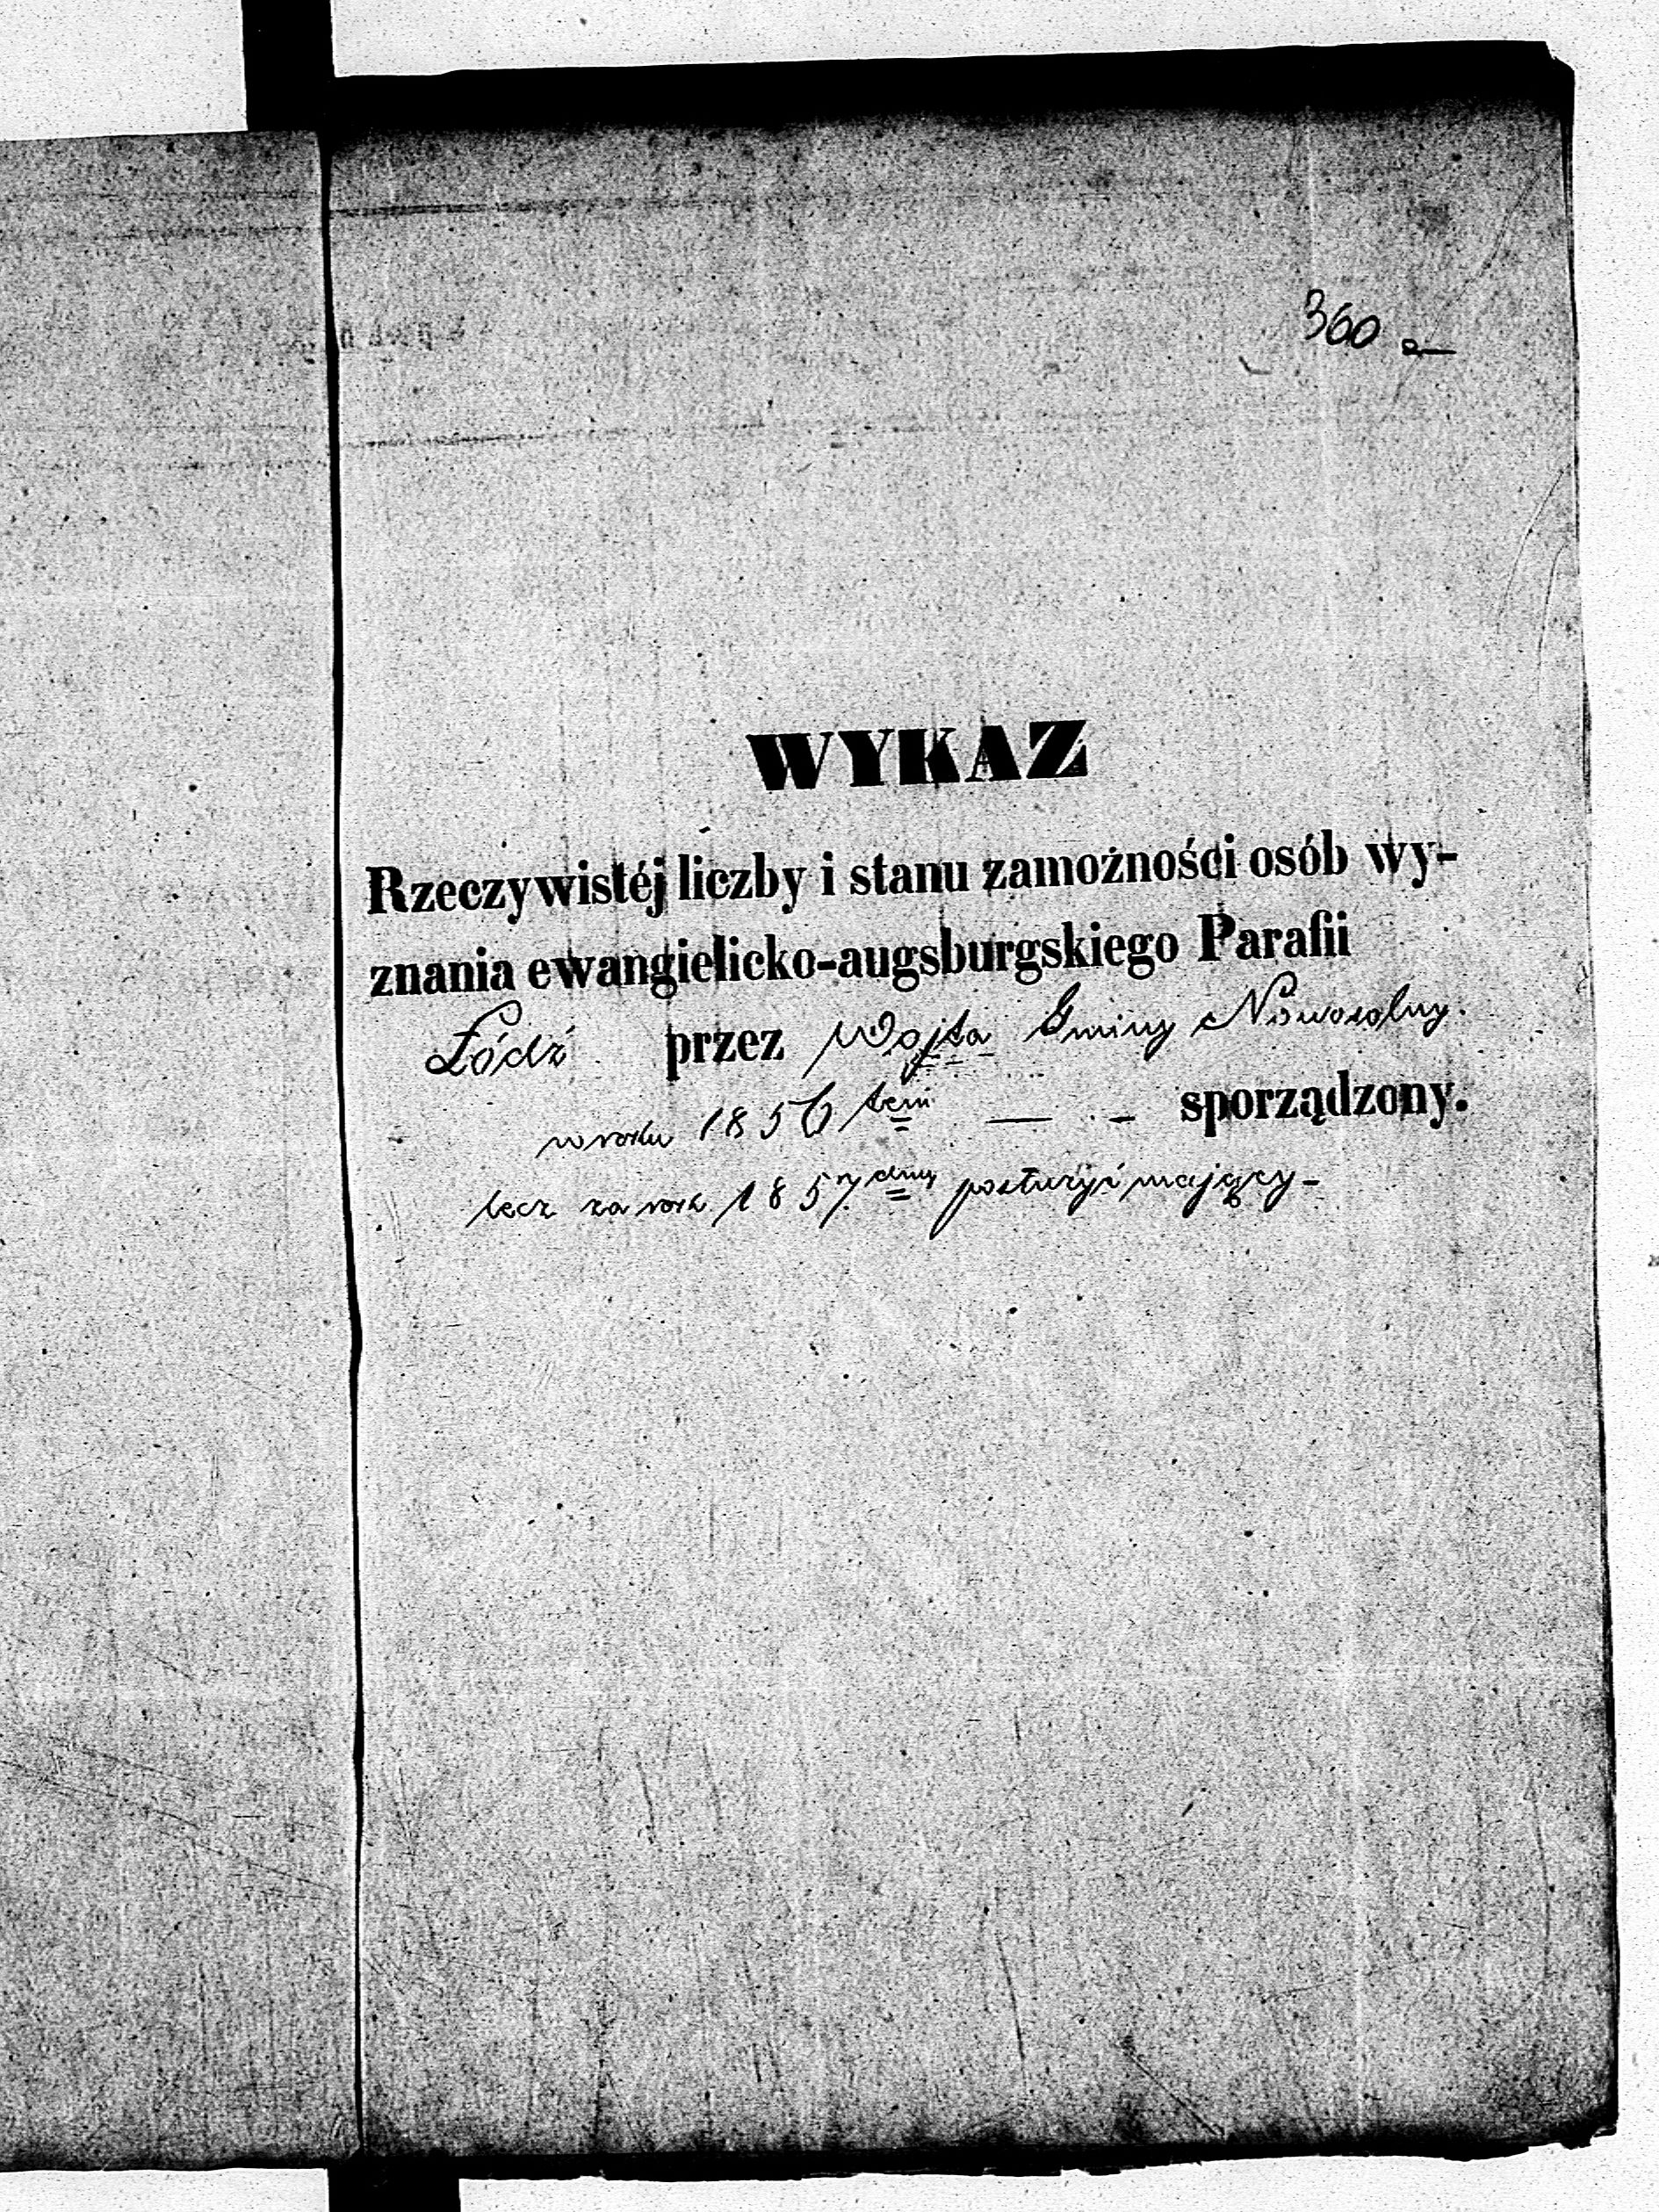 360
WYKAZ
Rzeczywistéj liczby i stanu zamożności osób wy-
znania ewangielicko-augsburgskiego Parafii
Łódź przez Wojta Gminy Nowosolny.
w roku 1856 tem — - sporządzony.
lecz za rok 1857. dmy posłużyć mający-